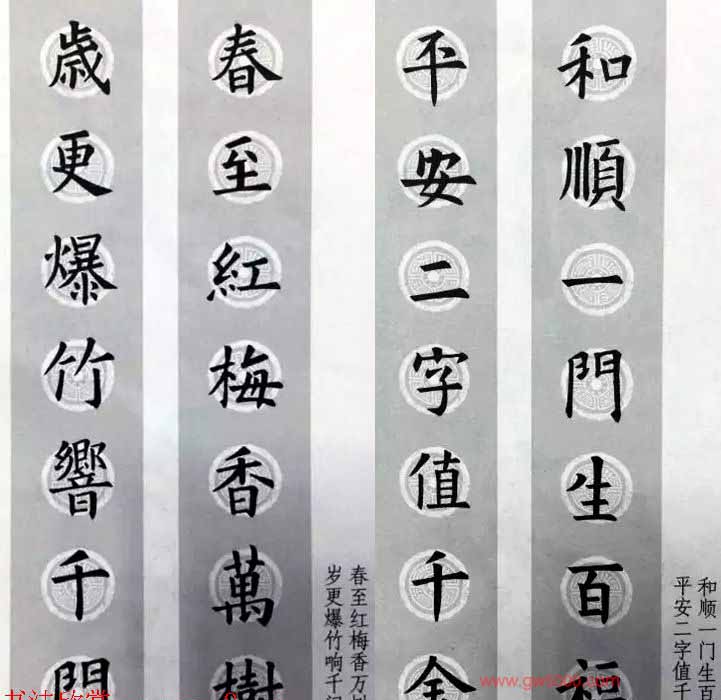 和順一門生百福
平安二字值千金
和顺一门生百
平安二字值千
春至紅梅香萬樹
歳更爆竹響千門
春至红梅香万
岁更爆竹响千门
书法欣赏